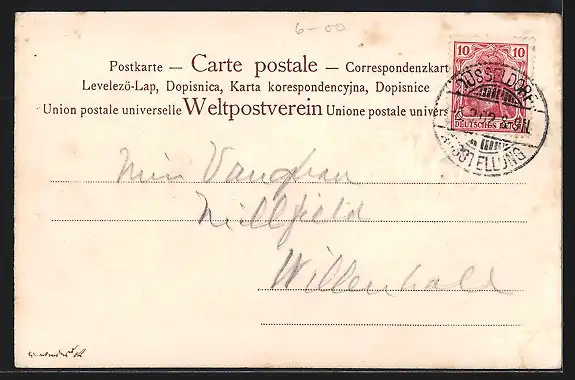 6-00
Postkarte — Carte postale — Correspondenzkart
Levelező-Lap, Dopisnica, Karta korespondencyjna, Dopisnice
Union postale universelle Weltpostverein Unione postale univers
10 10
DEUTSCHES REICH
DÜSSELDORF
AUSSTELLUNG
Miss Vaughan
Millfield
Willenhall